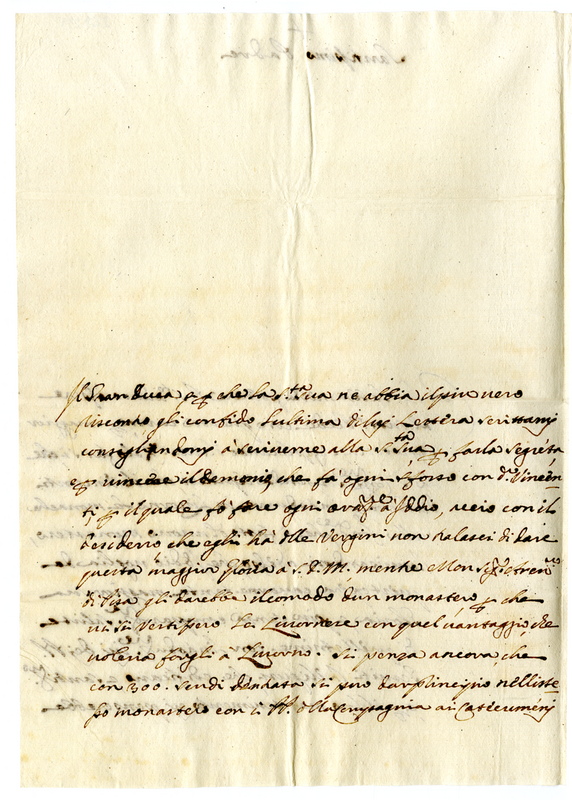 Il Gran Duca acciò che la S.ta Sua ne abbia il piu vero
riscontro gli confido l'ultima di lui Lettera scrittami
consigliandomi à scriverne alla S.tà Sua, e farla segreta
p vincere il demonio, che fà ogni sforzo con d.º Vincen
ti, p il quale fò fare ogni oraz.ne a Iddio, accio con il
desiderio, che egli hà delle Vergini non ralasci di dare
questa maggior Gloria à S. D. M. mentre Mons.r
di Pisa gli darebbe il comodo d'un monastero, p che
vi si vestissero le Livornese con quel vantaggio, che
voleva fargli à Livorno. Si pensa ancora, che
con 300. scudi d'entrata si può dar principio nell'iste
sso monastero con i della Compagnia ai Catecumeni